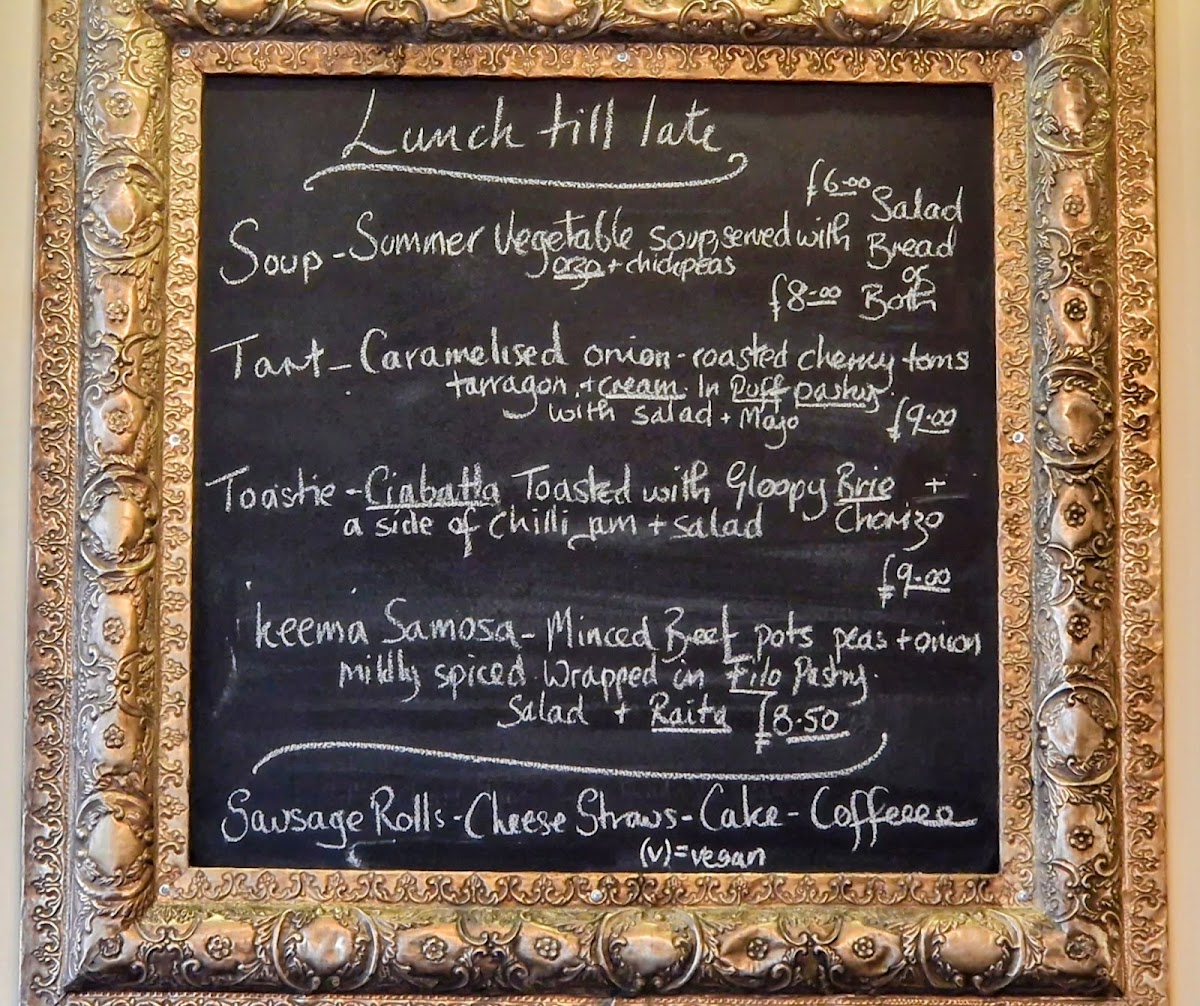 Lunch till late
£6.00 Salad
Soup - Summer Vegetable soup, served with Bread
orzo + chickpeas or
£8.00 Both
Tart - Caramelised onion - roasted cherry toms
tarragon + cream. In Puff pastry
with salad + Mayo £9.00
Toastie - Ciabatta Toasted with Gloopy Brie +
a side of Chilli jam + salad Chorizo
£9.00
keema Samosa - Minced Beef pots peas + onion
mildly spiced. Wrapped in Filo Pastry.
Salad + Raita £8.50
Sausage Rolls - Cheese Straws - Cake - Coffeeee
(v) = vegan